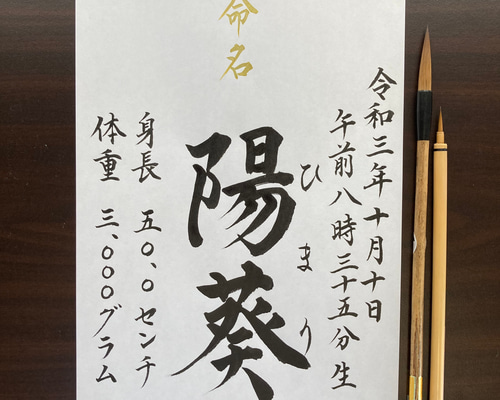 命名
令和三年十月十日
午前八時三十五分生
ひまり
陽葵
身長 五〇.〇センチ
体重 三、〇〇〇グラム